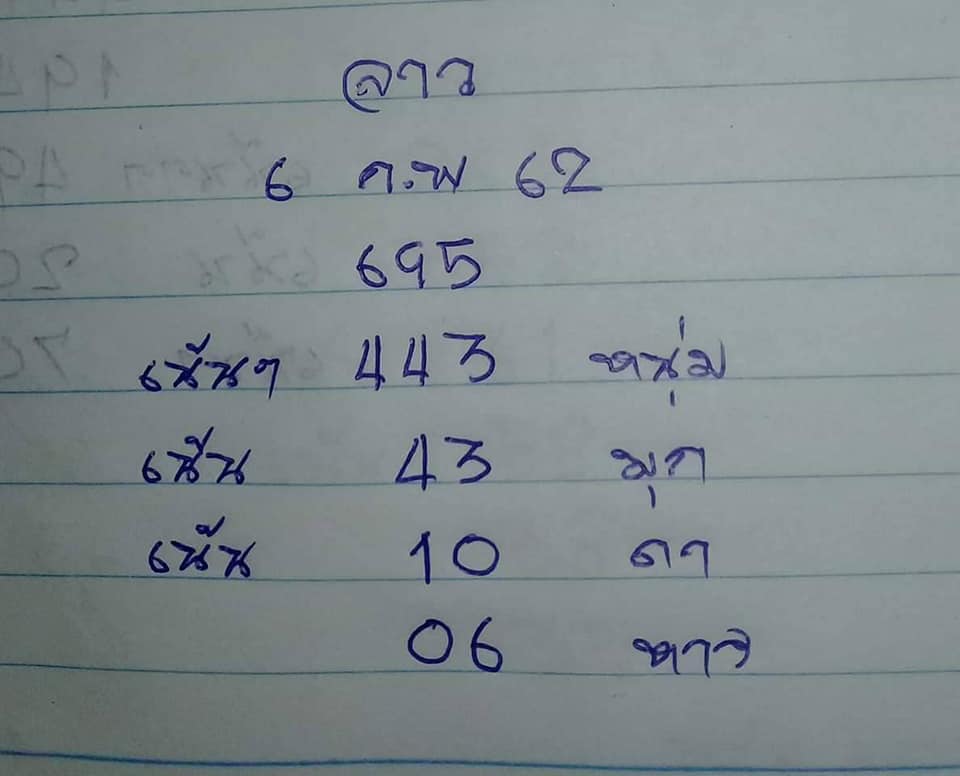 ลาว
6 ก.พ 62
695
เน้นๆ 443 หนุ่ม
เน้น 43 มุก
เน้น 10 ดา
06 หาร